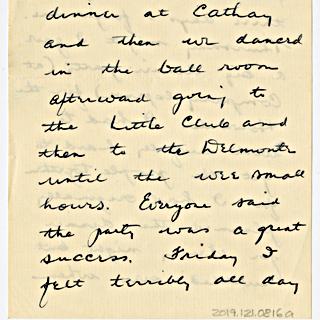 dinner at Cathay
and then we danced
in the ball room
afterward going to
the Little Club and
then to the Delmonte
until the wee small
hours. Everyone said
the party was a great
success. Friday I
felt terribly all day
2019.121.0816a